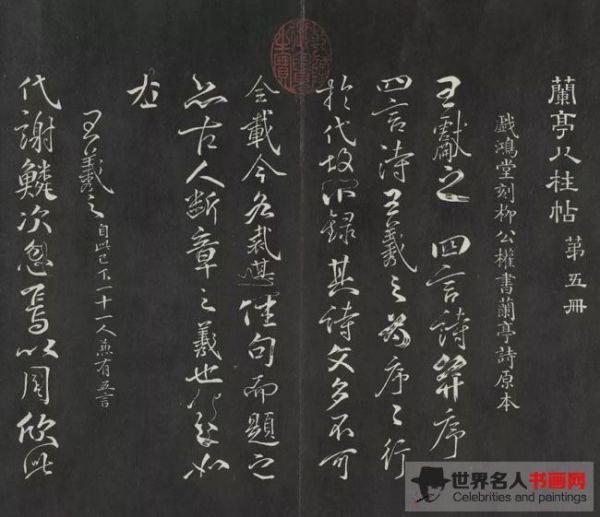 蘭亭八柱帖 第五冊
戲鴻堂刻柳公權書蘭亭詩原本
王獻之 四言詩并序
四言詩王羲之為序々行
於代故不錄其詩文多不可
全載今各裁其佳句而題之
亦古人斷章之義也 如
左
王羲之 自此已下一十一人並有五言
代謝鱗次忽焉以周欣此
世界名人书画网
Celebrities and paintings